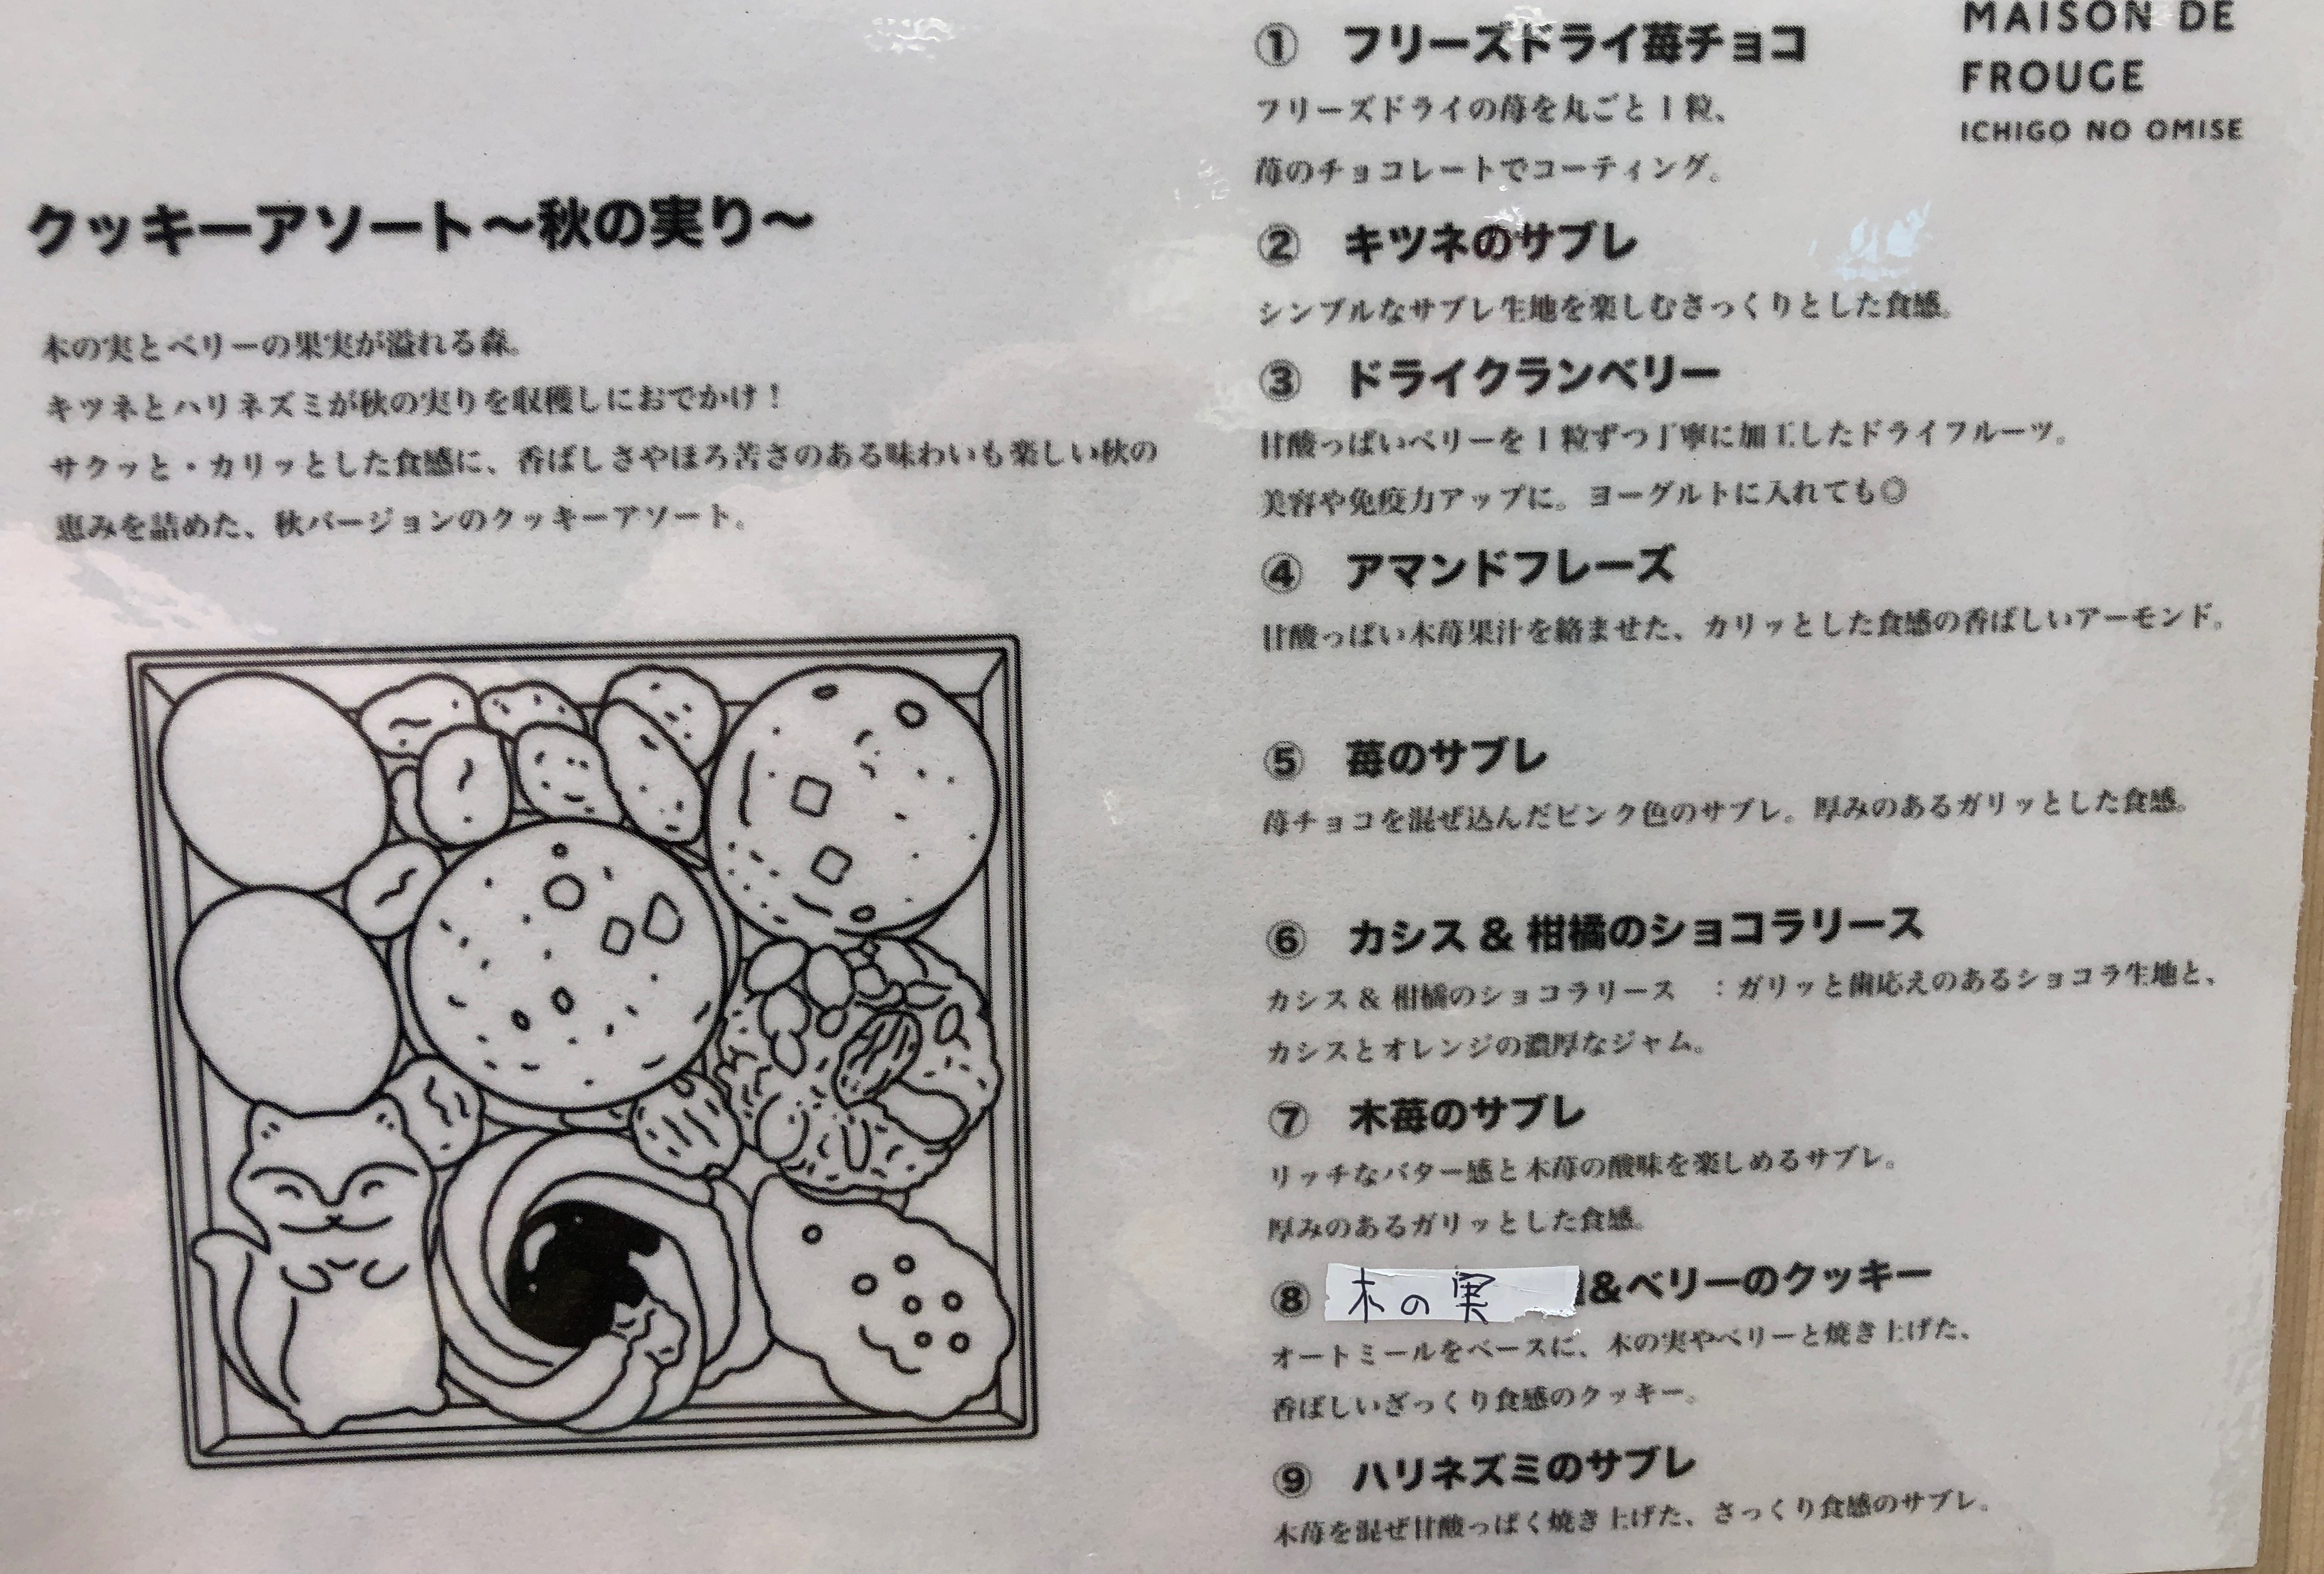 クッキーアソート～秋の実り～
木の実とベリーの果実が溢れる森。
キツネとハリネズミが秋の実りを収穫しにおでかけ！
サクッと・カリッとした食感に、香ばしさやほろ苦さのある味わいも楽しい秋の
恵みを詰めた、秋バージョンのクッキーアソート。
MAISON DE
FROUGE
ICHIGO NO OMISE
① フリーズドライ苺チョコ
フリーズドライの苺を丸ごと1粒、
苺のチョコレートでコーティング。
② キツネのサブレ
シンプルなサブレ生地を楽しむさっくりとした食感。
③ ドライクランベリー
甘酸っぱいベリーを1粒ずつ丁寧に加工したドライフルーツ。
美容や免疫力アップに。ヨーグルトに入れても◎
④ アマンドフレーズ
甘酸っぱい木苺果汁を絡ませた、カリッとした食感の香ばしいアーモンド。
⑤ 苺のサブレ
苺チョコを混ぜ込んだピンク色のサブレ。厚みのあるガリッとした食感。
⑥ カシス & 柑橘のショコラリース
カシス & 柑橘のショコラリース ：ガリッと歯応えのあるショコラ生地と、
カシスとオレンジの濃厚なジャム。
⑦ 木苺のサブレ
リッチなバター感と木苺の酸味を楽しめるサブレ。
厚みのあるガリッとした食感。
⑧ 木の実 &ベリーのクッキー
オートミールをベースに、木の実やベリーと焼き上げた、
香ばしいざっくり食感のクッキー。
⑨ ハリネズミのサブレ
木苺を混ぜ甘酸っぱく焼き上げた、さっくり食感のサブレ。